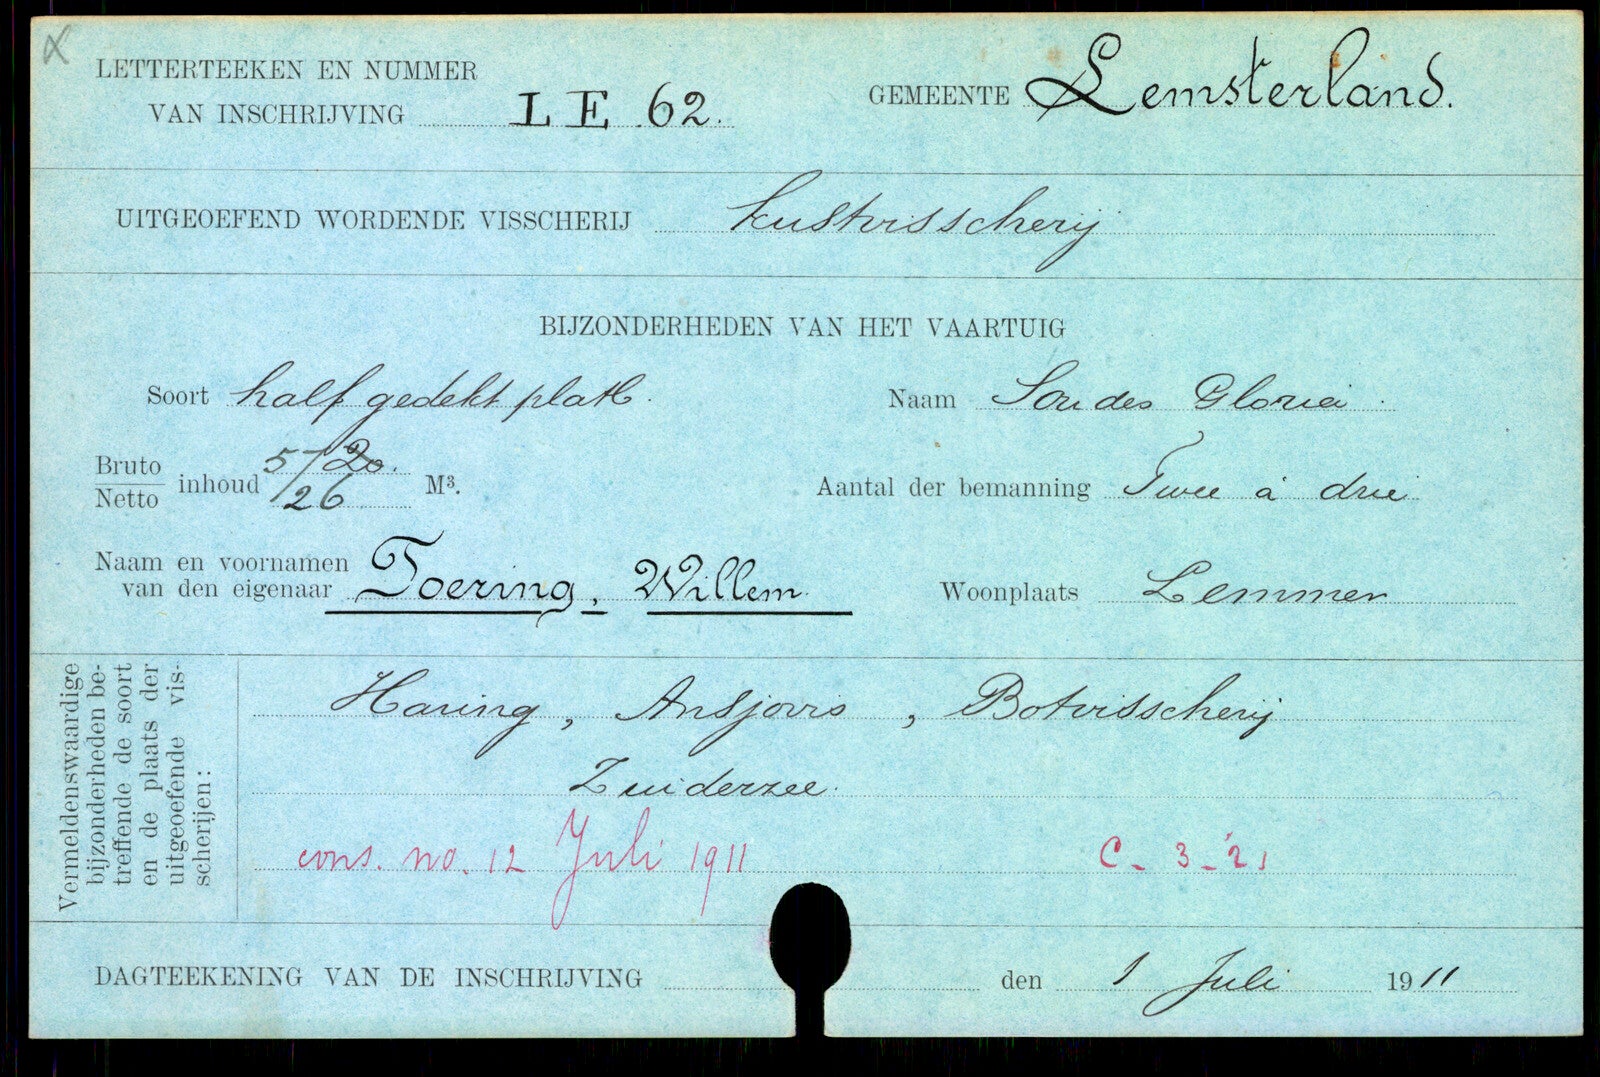 LETTERTEEKEN EN NUMMER
VAN INSCHRIJVING LE 62.
GEMEENTE Lemsterland.
UITGEOEFEND WORDENDE VISSCHERIJ kustvisscherij
BIJZONDERHEDEN VAN HET VAARTUIG
Soort half gedekt platb.
Naam Sou des Gloria
Bruto
Netto inhoud 26 M³.
Aantal der bemanning Twee à drie
Naam en voornamen
van den eigenaar Toering, Willem
Woonplaats Lemmer
Vermeldenswaardige
bijzonderheden be-
treffende de soort
en de plaats der
uitgeoefende vis-
scherijen:
Haring, Ansjovis, Botvisscherij
Zuiderzee.
cons. no. 12 Juli 1911
C - 3 - 21
DAGTEEKENING VAN DE INSCHRIJVING den 1 Juli 1911